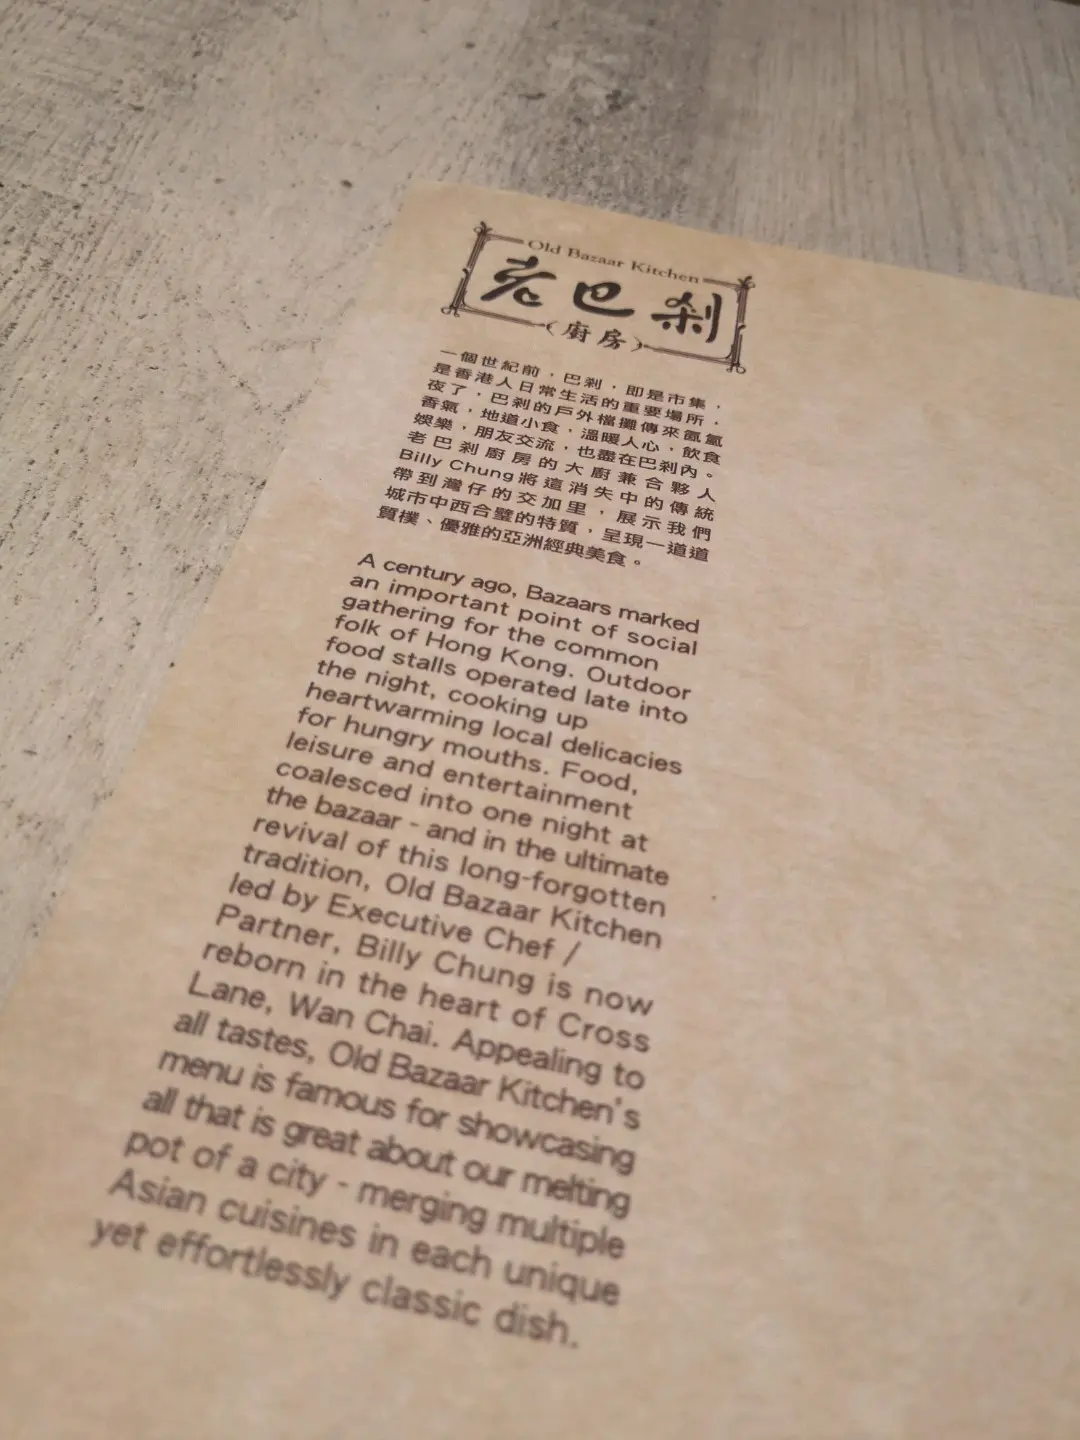 Old Bazaar Kitchen
老巴剎
（廚房）
一個世紀前，巴剎，即是市集，
是香港人日常生活的重要場所，
夜了，巴剎的戶外檔攤傳來氤氳
香氣，地道小食，溫暖人心，飲食
娛樂，朋友交流，也盡在巴剎內。
老巴剎廚房的大廚兼合夥人
Billy Chung將這消失中的傳統
帶到灣仔的交加里，展示我們
城市中西合璧的特質，呈現一道道
質樸、優雅的亞洲經典美食。
A century ago, Bazaars marked
an important point of social
gathering for the common
folk of Hong Kong. Outdoor
food stalls operated late into
the night, cooking up
heartwarming local delicacies
for hungry mouths. Food,
leisure and entertainment
coalesced into one night at
the bazaar - and in the ultimate
revival of this long-forgotten
tradition, Old Bazaar Kitchen
led by Executive Chef /
Partner, Billy Chung is now
reborn in the heart of Cross
Lane, Wan Chai. Appealing to
all tastes, Old Bazaar Kitchen's
menu is famous for showcasing
all that is great about our melting
pot of a city - merging multiple
Asian cuisines in each unique
yet effortlessly classic dish.